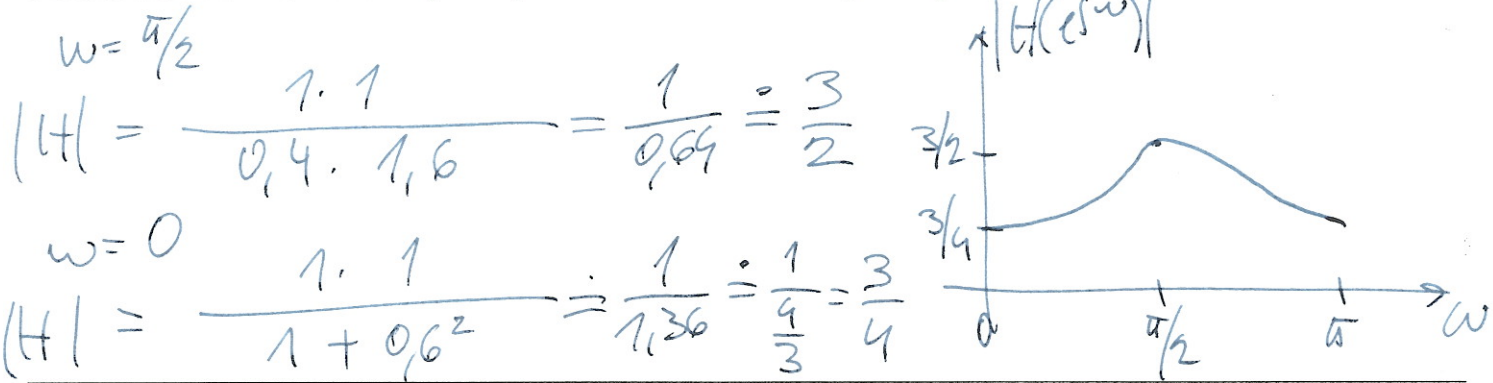 w = π/2
|H| = 1 · 1 / 0,4 · 1,6 = 1 / 0,64 ≐ 3 / 2
w = 0
|H| = 1 · 1 / 1 + 0,6² ≐ 1 / 1,36 ≐ 1 / 4/3 = 3 / 4
|H(e^jw)|
3/2
3/4
0 π/2 π ω